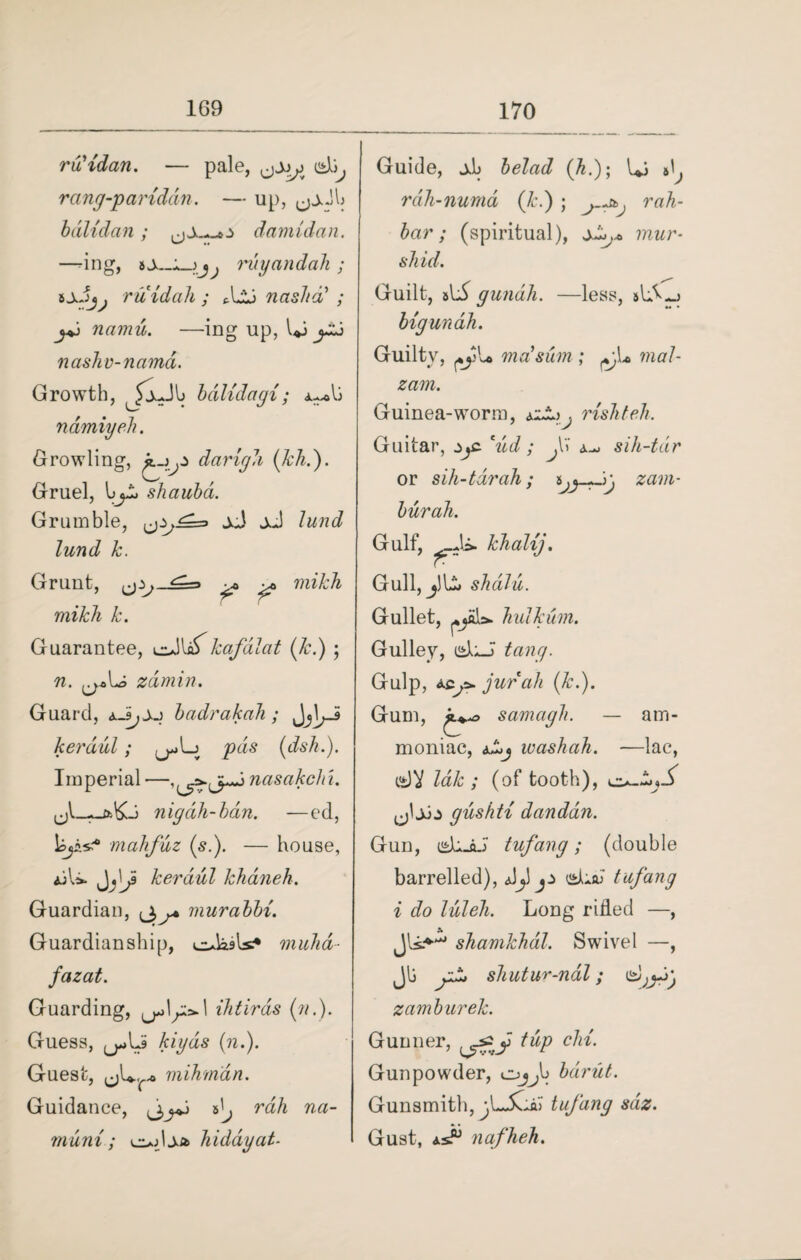 169
170
rú'ídan. — pale, رنگ پریدن
rang-paríddn. — up, بالیدن
bálídan ; دمیدن damídan.
—ing, روینده rúyandah ;
روئیده rú'ídah ; نشاء nashá' ;
نمو namú. —ing up, نشو نما
nashv-namá.
Growth, بالیدگی bálídagí; نامیه
námiyeh.
Growling, دریغ darígh (kh.).
Gruel, شوبا shaubá.
Grumble, لند لند کردن lund
lund k.
Grunt, میخ میخ کردن mikh
mikh k.
Guarantee, کفالت kafálat (k.) ;
n. ضامن zámin.
Guard, بدرقه badrakah ; قراول
kerdúl ; پاس pás (dsh.).
Imperial —, نسقچی nasakchí.
نگاهبان nigáh-bán. —ed,
محفوظ mahfúz (s.). — house,
قراول خانه kerdúl kháneh.
Guardian, مربی murabbí.
Guardianship, محافظت muhá-
fazat.
Guarding, احتراس ihtirás (n.).
Guess, قیاس kiyás (n.).
Guest, مهمان mihmán.
Guidance, راه نمونی ráh na-
múní ; هدایت hiddyat-
Guide, بلد belad (h.); راه نما
ráh-numá (k.) ; رهبر rah-
bar ; (spiritual), مرشد mur-
shid.
Guilt, گناه gunáh. —less, بیگناه
bígunáh.
Guilty, ماثوم ma'súm ; ملزم mal-
zam.
Guinea-worm, رشته rishteh.
Guitar, عود 'úd ; سه تار sih-tár
or sih-tárah ; زنبوره zam-
búrah.
Gulf, خلیج khalíj.
Gull, شالو shálú.
Gullet, حلقوم hulkúm.
Gulley, تنگ tang.
Gulp, جرعه jur'ah (k.).
Gum, صمغ samagh. — am-
moniac, وشه washah. —lac,
لاك lák ; (of tooth), گوشت
دندان gúshtí dandán.
Gun, تفنگ tufang ; (double
barrelled), تفنگ دو لوله tufang
i do lúleh. Long rifled —,
شمخال shamkhál. Swivel —,
شتر نال shutur-nál ; زنبورك
zamburek.
Gunner, توپچی túp chí.
Gunpowder, باروت bárút.
Gunsmith, تفنگساز tufang sáz.
Gust, نفحه nafheh.